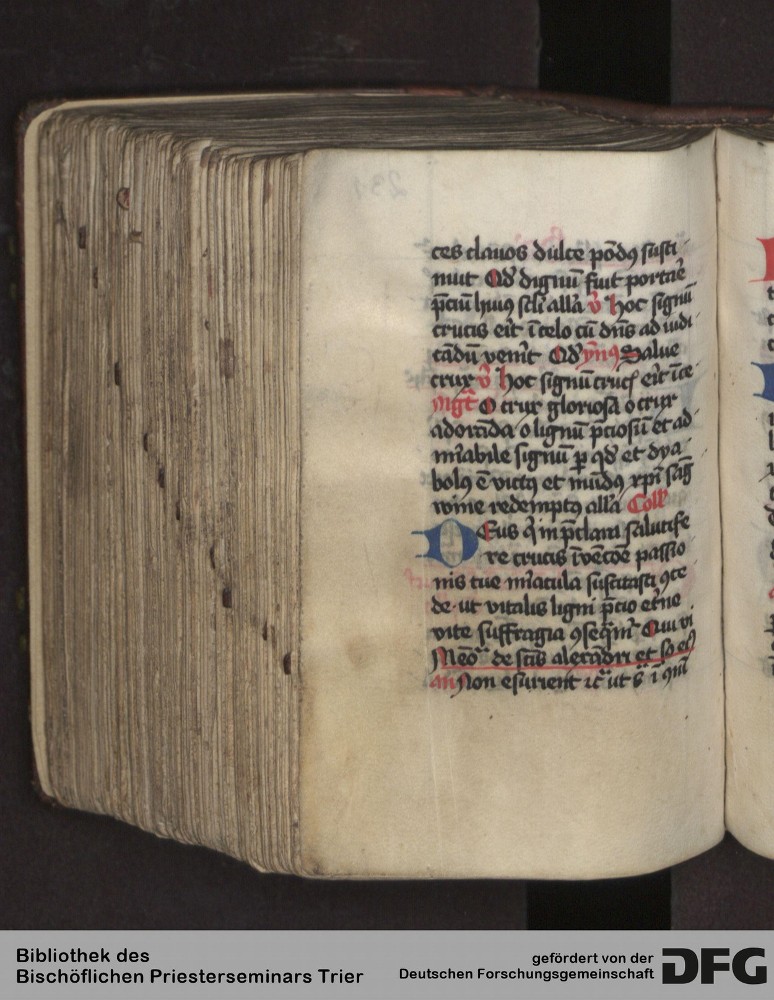 ces clauos dulce põdꝰ susti
nuit Qd̛ dignũ fuit portare
p̃ciũ huiꝰ scl̃i all̃a v̛ hoc signũ
crucis erit ĩ celo cũ dñs ad iudi
cãdũ venerit Ad ymnꝰ Salue
crux v̛ Hoc signũ crucꝭ erit ĩ ce
Mgt̃ O crux gloriosa o crux
adorãda o lignũ p̃ciosũ et ad
mirabile signũ ꝑ qd̛ et dya
bolꝰ ẽ victꝰ et mũdꝰ xp̃i sãg
wine redemptꝰ all̃a Coll̃
DEus q̃ in p̃clara salutife
re crucis ĩvẽcõe passio
nis tue miracula suscitasti ꝯce
de ut vitalis ligni p̃cio et̃ne
vite suffragia ꝯseq̃mͬ Qui vi
Meõ de scĩs alexãdri et so eiꝰ
añ Non esurient
Bibliothek des
Bischöflichen Priesterseminars Trier
gefördert von der
Deutschen Forschungsgemeinschaft
DFG